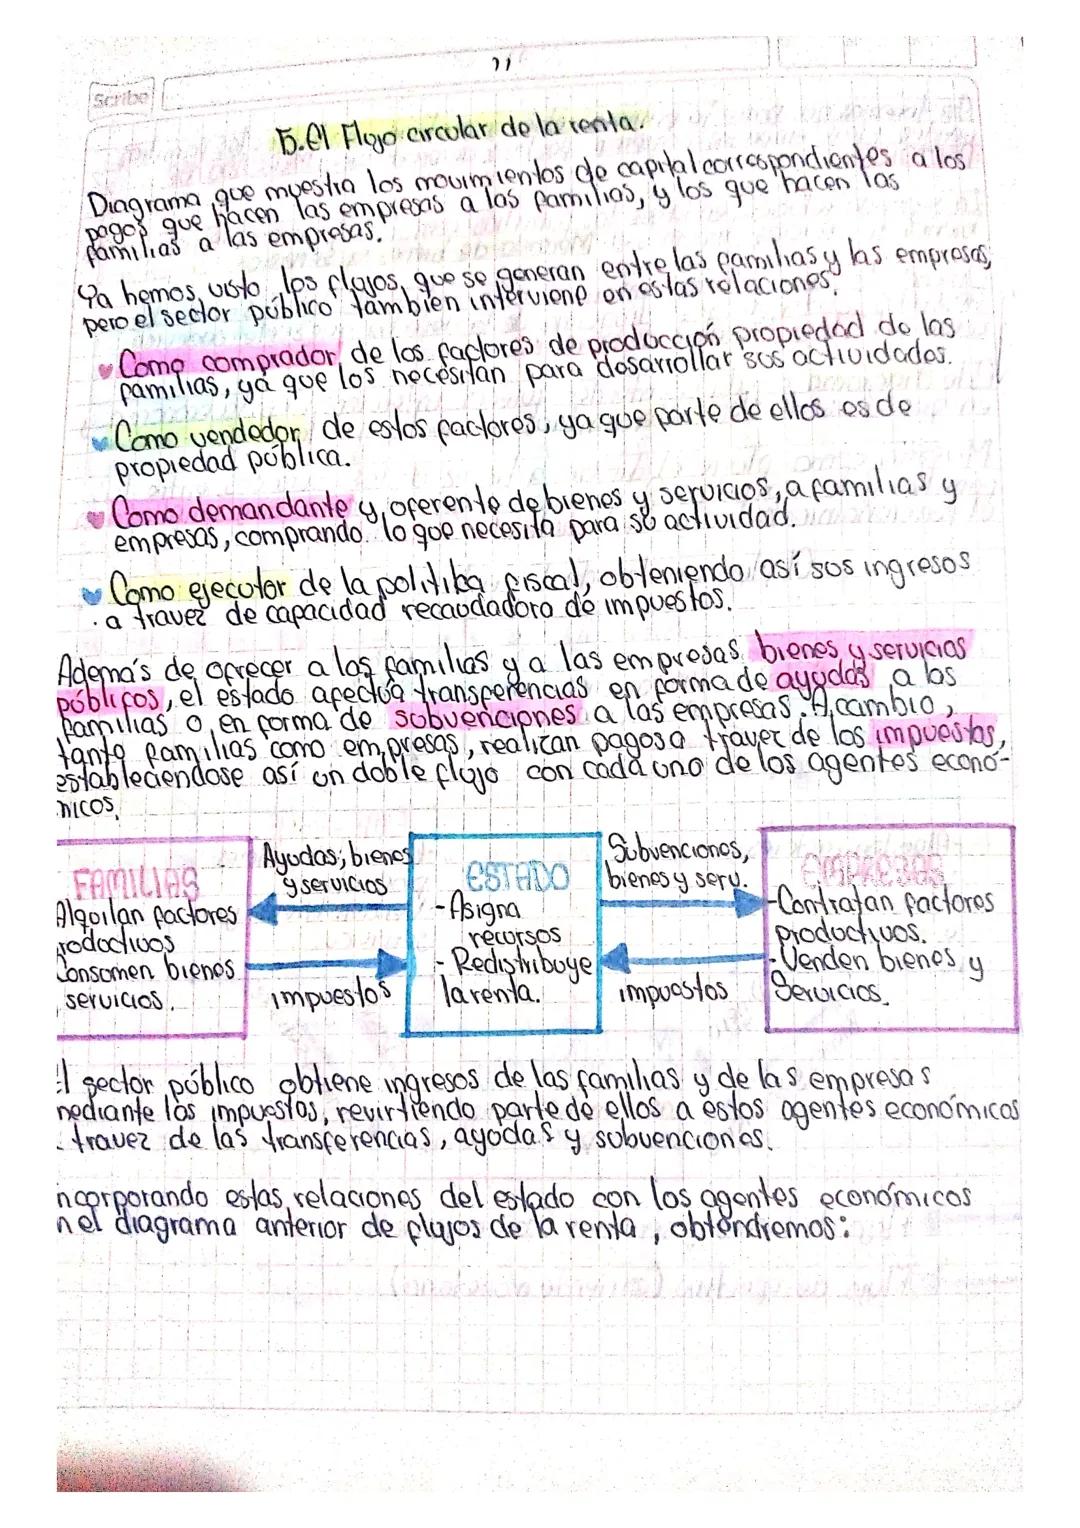 11
Scribe
5.El Flujo circular de la renta.
Diagrama que muestra los movimientos de capital correspondientes a los
pagos que hacen las empresas a las familias, y los que hacen las
familias a las empresas.
Ya hemos visto los flujos que se generan entre las familias y las empresas,
pero el sector público tambien interviene en estas relaciones.
Como comprador de los factores de producción propiedad de las
familias, ya que los necesitan para desarrollar sus actividades.
Como vendedor de estos factores, ya que parte de ellos es de
propiedad pública.
Como demandante y oferente de bienes y servicios, a familias y
empresas, comprando lo que necesita para su actividad.
Como ejecutor de la politika fiscal, obteniendo así sus ingresos
a travez de capacidad recaudadora de impuestos.
Además de ofrecer a las familias y a las empresas bienes y servicios
públicos, el estado afectúa transferencias en forma de ayudas a las
familias o en forma de subvenciones a las empresas. A cambio,
tanto familias como empresas, realizan pagos a travez de los impuestos,
estableciendose así un doble flujo con cada uno de los agentes econó-
micos.
FAMILIAS
Alquilan factores
roductivos
Consumen bienes
servicios.
Ayudas; bienes
y servicios
impuestos
ESTADO
-Asigna
recursos
- Redistribuye
la renta.
Subvenciones,
bienes y serv.
impuestos
EMPRESAS
-Contratan factores
productivos.
-Venden bienes y
Servicios.
El sector público obtiene ingresos de las familias y de las empresas
mediante los impuestos, revirtiendo parte de ellos a estos agentes económicos
travez de las transferencias, ayudas y subvenciones.
ncorporando estas relaciones del estado con los agentes económicos
n el diagrama anterior de flujos de la renta, obtendremos: